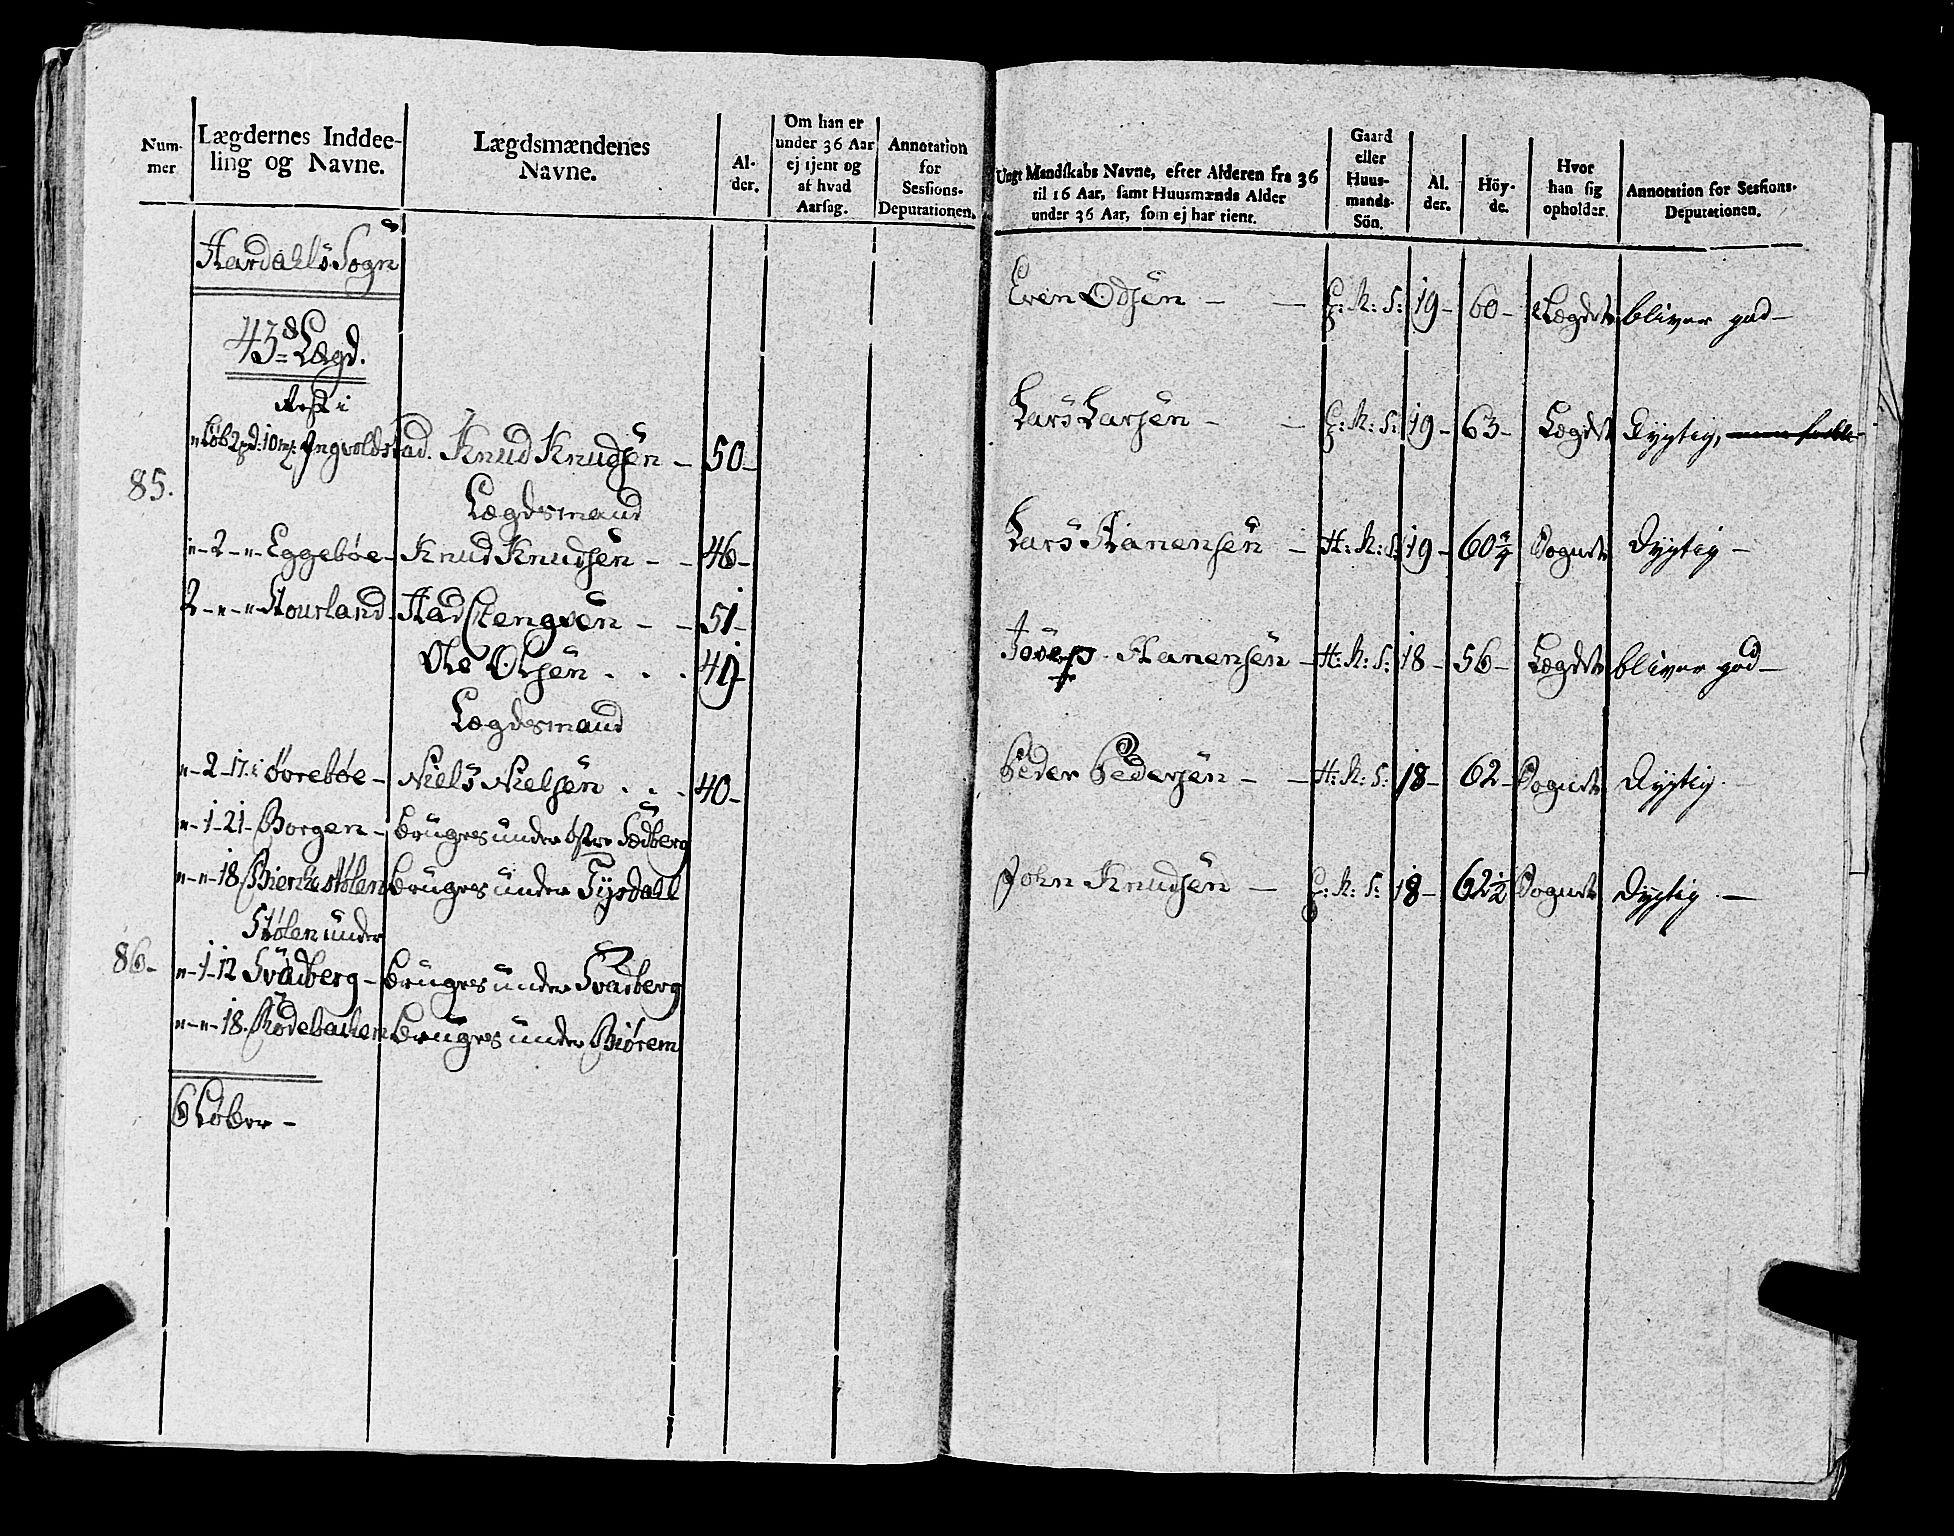 Num-
mer
Lægdernes Inddee-
ling og Navne.
Lægdsmændenes
Navne.
Al-
der.
Om han er
under 36 Aar
ej tjent og
af hvad
Aarsag.
Annotation
for
Sessions-
Deputationen.
Aardahls Sogn
43de Lægd.
Rest i
85.
„ Löb 2 pd: 10 mk: Ingvoldstad. Knud Knudsen – 50 –
Lægdsmand
„ – 2 – „ – Eggebøe – Knud Knudsen – – 46 –
2 – „ – „ Stourland – Aad Stengsen – – 51 –
Ole Olsen . . . 49
Lægdsmand
„ – 2 – 17. i Øvrebøe – Niels Nielsen . . . 40 –
„ – 1 – 21 – Borgen – bruges under østre Sædberg
„ – „ – 18. Bierkestølen bruges under Tysdall
Stølen under
86 –
„ – 1 – 12 Svadberg – bruges under Svadberg
„ – „ – 18. Rødebakken bruges under Biørem
6 Löber –
Ungt Mandskabs Navne, efter Alderen fra 36
til 16 Aar, samt Huusmænds Alder
under 36 Aar, som ej har tient.
Gaard
eller
Huus-
mands-
Sön.
Al.
der.
Höy-
de.
Hvor
han sig
opholder.
Annotation for Sessions-
Deputationen.
Even Odsen – – G: M: S: 19 – 60 – Lægdet bliver god –
Lars Larsen – – G: M: S: 19 – 63 – Lægdet Dygtig,
Lars Hanensen – H: M: S: 19 – 60 Sognet Dygtig –
Josep Hanensen – H: M: S: 18 – 56 – Lægdet bliver god –
Peder Pedersen – – H: M: S: 18 – 62 – Sognet Dygtig.
John Knudsen – G: M: S: 18 – 62½ Sognet Dygtig –